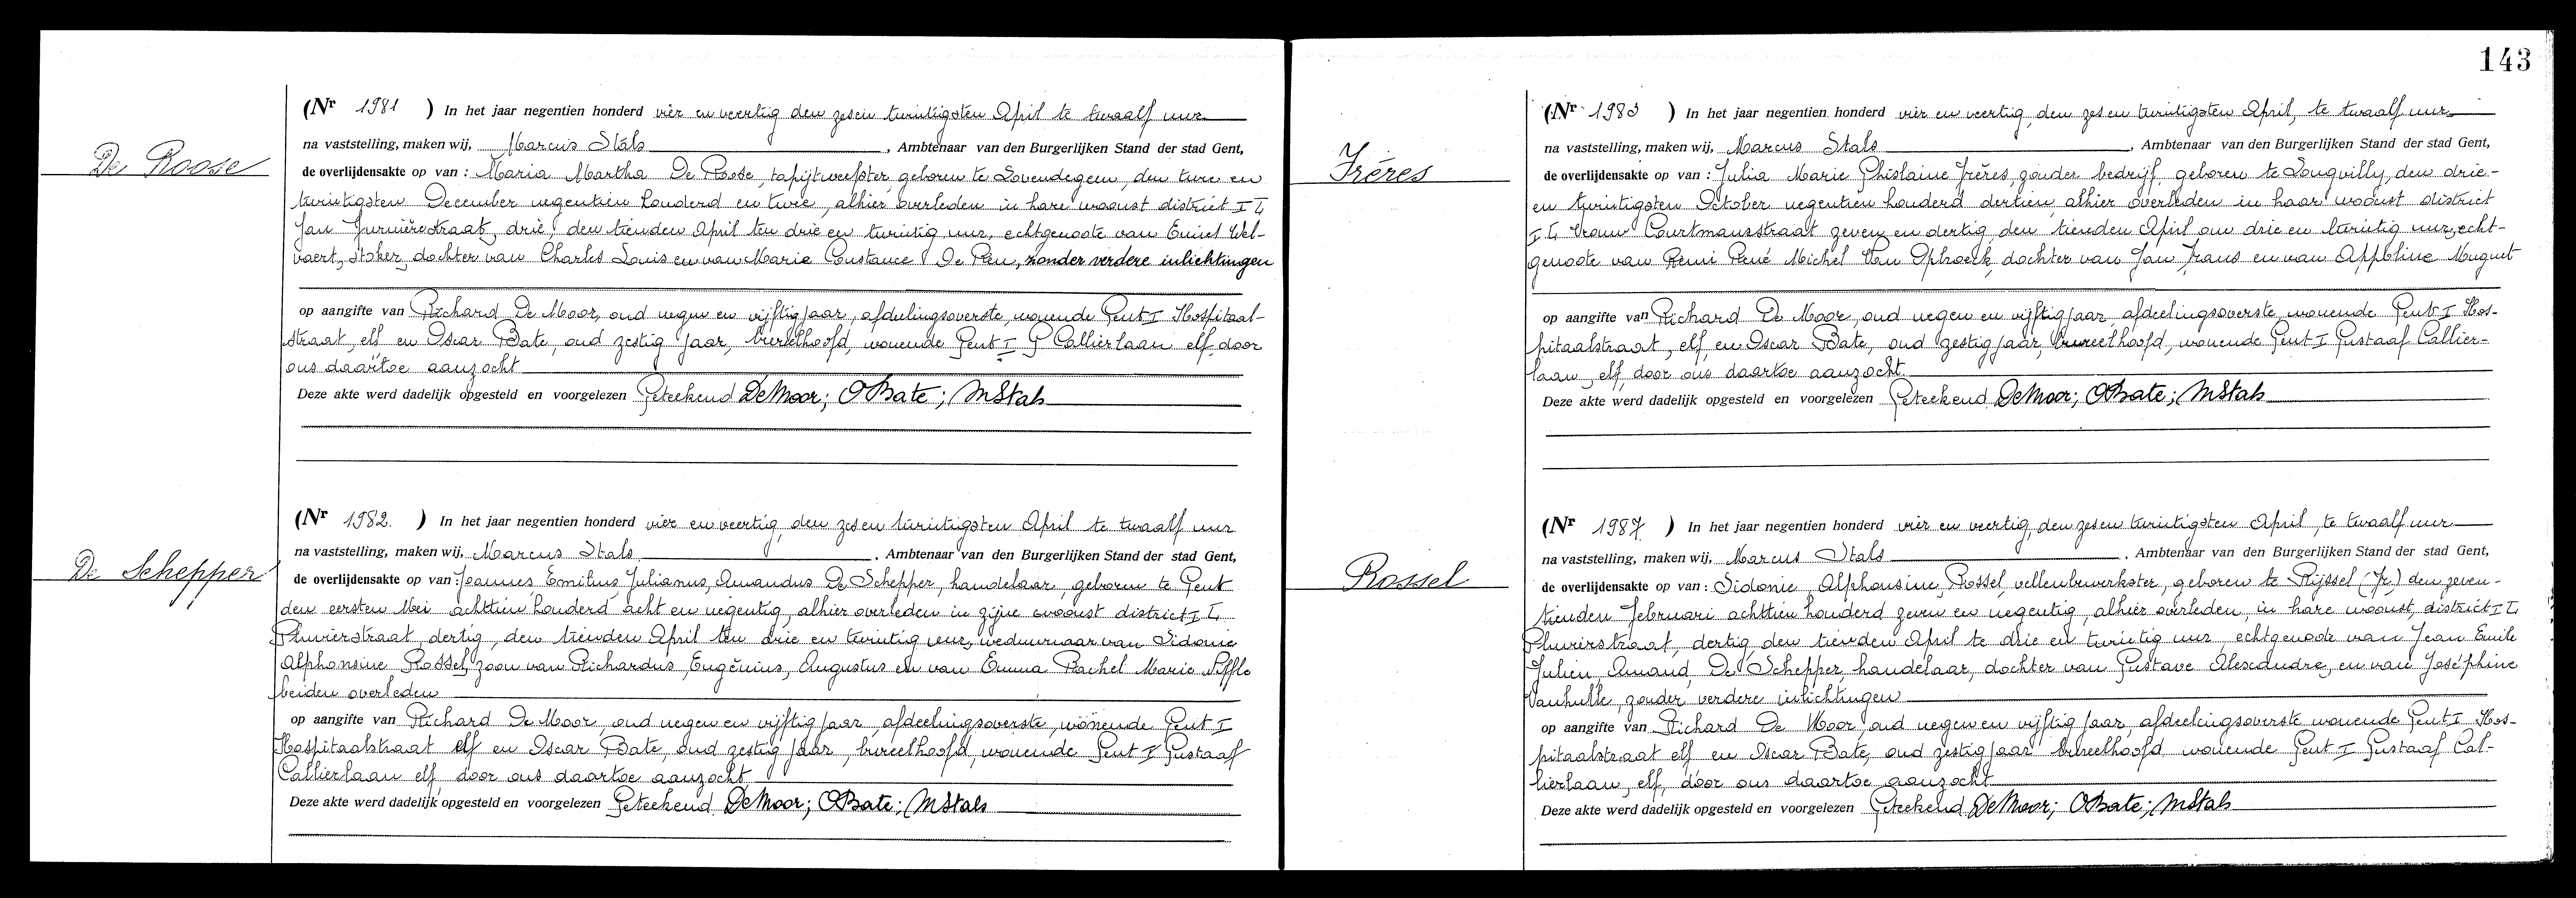 De Roose
(Nr 1981 ) In het jaar negentien honderd vier en veertig den zesen twintigsten April te twaalf uur
na vaststelling, maken wij, Marcus Stals , Ambtenaar van den Burgerlijken Stand der stad Gent,
de overlijdensakte op van : Maria Martha De Roose, tapijtweefster, geboren te Lovendegem, den twee en
twintigsten December negentien honderd en twee, alhier overleden in hare woonst district I
Jan straat, drie, den tienden April ten drie en twintig uur, echtgenoote van Emiel Wel-
vaert, stoker, dochter van Charles Louis en van Marie Constance De Pau, zonder verdere inlichtingen
op aangifte van Richard De Moor, oud negen en vijftig jaar, afdeelingsoverste, wonende Gent I Hospitaal-
straat, elf en Oscar Bate, oud zestig jaar, bureelhoofd, wonende Gent I G Callierlaan elf, door
ons daartoe aanzocht
Deze akte werd dadelijk opgesteld en voorgelezen Geteekend DeMoor; OBate; MStals
De Schepper
(Nr 1982. ) In het jaar negentien honderd vier en veertig, den zesen twintigsten April te twaalf uur
na vaststelling, maken wij, Marcus Stals , Ambtenaar van den Burgerlijken Stand der stad Gent,
de overlijdensakte op van : Joannes, Emilius, Julianus, Amandus De Schepper, handelaar, geboren te Gent
den eersten Mei achttien honderd acht en negentig, alhier overleden in zijne woonst district I
Pluvierstraat, dertig, den tienden April ten drie en twintig uur, weduwnaar van Sidonie
Alphonsine Rossel, zoon van Richardus, Eugenius, Augustus en van Emma Rachel Marie
beiden overleden
op aangifte van Richard De Moor, oud negen en vijftig jaar, afdeelingsoverste, wonende Gent I
Hospitaalstraat elf en Oscar Bate, oud zestig jaar, bureelhoofd, wonende Gent I Gustaaf
Callierlaan elf, door ons daartoe aanzocht
Deze akte werd dadelijk opgesteld en voorgelezen Geteekend DeMoor; OBate; MStals
143
Frères
(Nr 1983 ) In het jaar negentien honderd vier en veertig, den zes en twintigsten April, te twaalf uur
na vaststelling, maken wij, Marcus Stals , Ambtenaar van den Burgerlijken Stand der stad Gent,
de overlijdensakte op van : Julia Marie Ghislaine Frères, zonder bedrijf, geboren te Longvilly, den drie-
en twintigsten October negentien honderd dertien, alhier overleden in haar woonst district
I Vrouw Courtmansstraat zeven en dertig, den tienden April om drie en twintig uur, echt-
genoote van Remi René Michel Van Ophoeck, dochter van Jan Frans en van Appoline Muguet
op aangifte van Richard De Moor, oud negen en vijftig jaar, afdeelingsoverste, wonende Gent I Hos-
pitaalstraat, elf, en Oscar Bate, oud zestig jaar, bureelhoofd, wonende Gent I Gustaaf Callier-
laan, elf, door ons daartoe aanzocht.
Deze akte werd dadelijk opgesteld en voorgelezen Geteekend DeMoor; OBate; MStals
Rossel
(Nr 1984 ) In het jaar negentien honderd vier en veertig, den zesen twintigsten April, te twaalf uur
na vaststelling, maken wij, Marcus Stals , Ambtenaar van den Burgerlijken Stand der stad Gent,
de overlijdensakte op van : Sidonie, Alphonsine, Rossel, vellenbewerkster, geboren te Rijssel (Fr.) den zeven-
tienden Februari achttien honderd zeven en negentig, alhier overleden, in hare woonst, district I
Pluvierstraat, dertig, den tienden April te drie en twintig uur echtgenoote van Jean Emile
Julien, Amand, De Schepper, handelaar, dochter van Gustave Alexandre, en van Joséphine
Vanhulle, zonder verdere inlichtingen
op aangifte van Richard De Moor, oud negen en vijftig jaar, afdeelingsoverste wonende Gent I Hos-
pitaalstraat elf en Oscar Bate, oud zestig jaar bureelhoofd wonende Gent I Gustaaf Cal-
lierlaan, elf, door ons daartoe aanzocht
Deze akte werd dadelijk opgesteld en voorgelezen Geteekend DeMoor; OBate; MStals